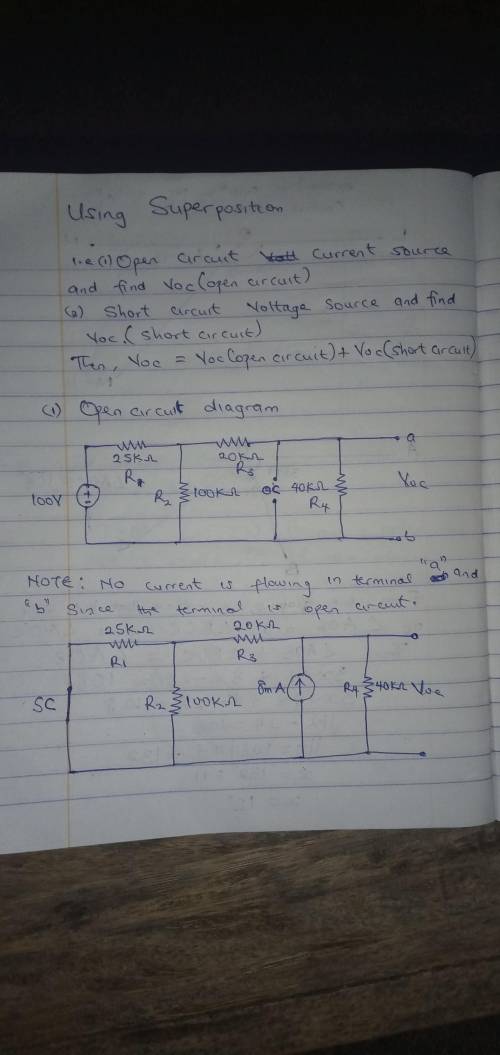 Using Superposition
i.e (1) Open circuit current source
and find Voc (open circuit)
(2) Short circuit Voltage source and find
Voc (short circuit)
Then, Voc = Voc (open circuit) + Voc (short circuit)
(1) Open circuit diagram
25KΩ
20KΩ
a
R1
R3
100V
R2
100KΩ
OC
40KΩ
R4
Voc
b
NOTE: No current is flowing in terminal "a" and
"b" Since the terminal is open circuit.
25KΩ
20KΩ
R1
R3
SC
R2
100KΩ
8mA
R4
40KΩ
Voc